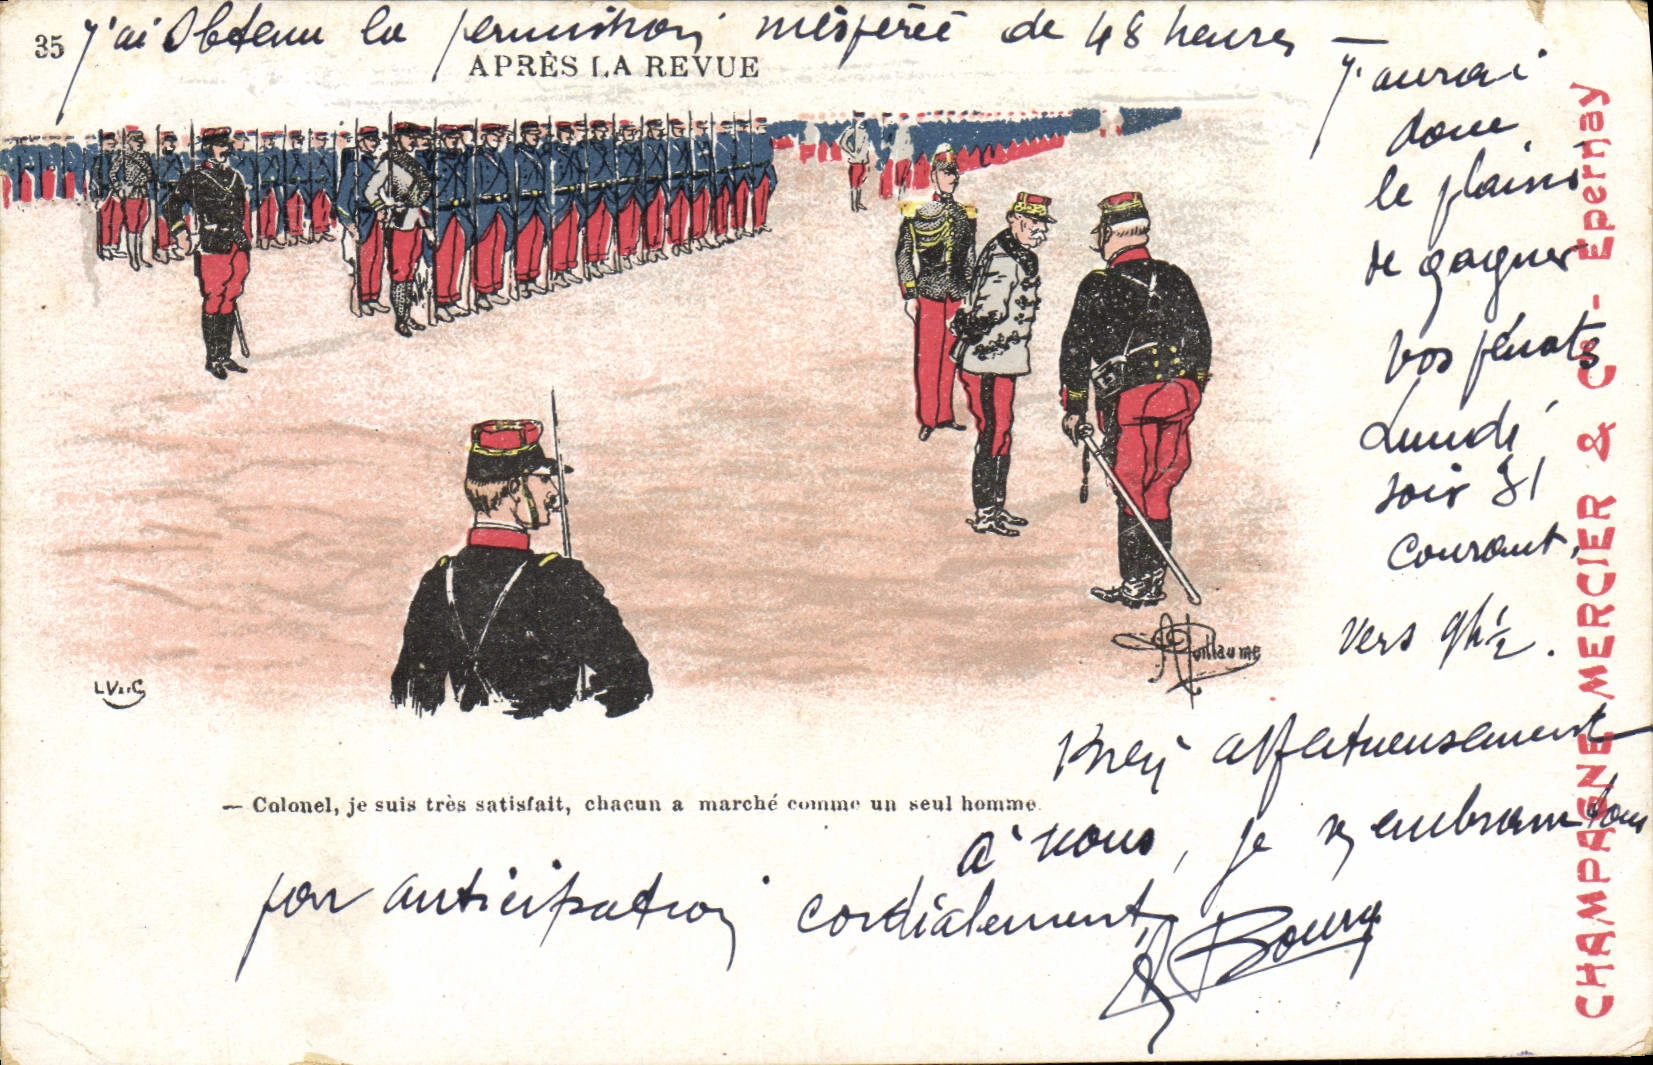 35
J'ai obtenu la permission inespérée de 48 heures —
APRÈS LA REVUE
J'aurai
donc
le plaisir
de gagner
vos pénates
Lundi
soir 31
courant,
vers 9h ½.
A Guillaume
L V & C
— Colonel, je suis très satisfait, chacun a marché comme un seul homme.
Bien affectueusement
à vous, je vs embrasse tous
par anticipation cordialement,
Boury
CHAMPAGNE MERCIER & Cie - Epernay